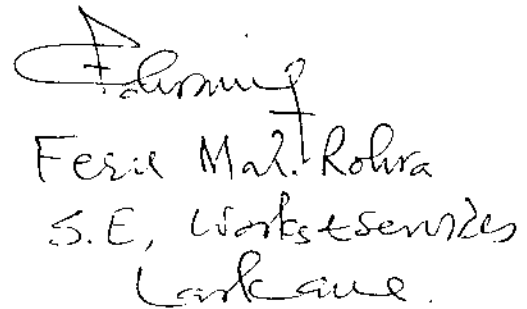 Mal. Rohra
S.E, Works & Services
Larkana.